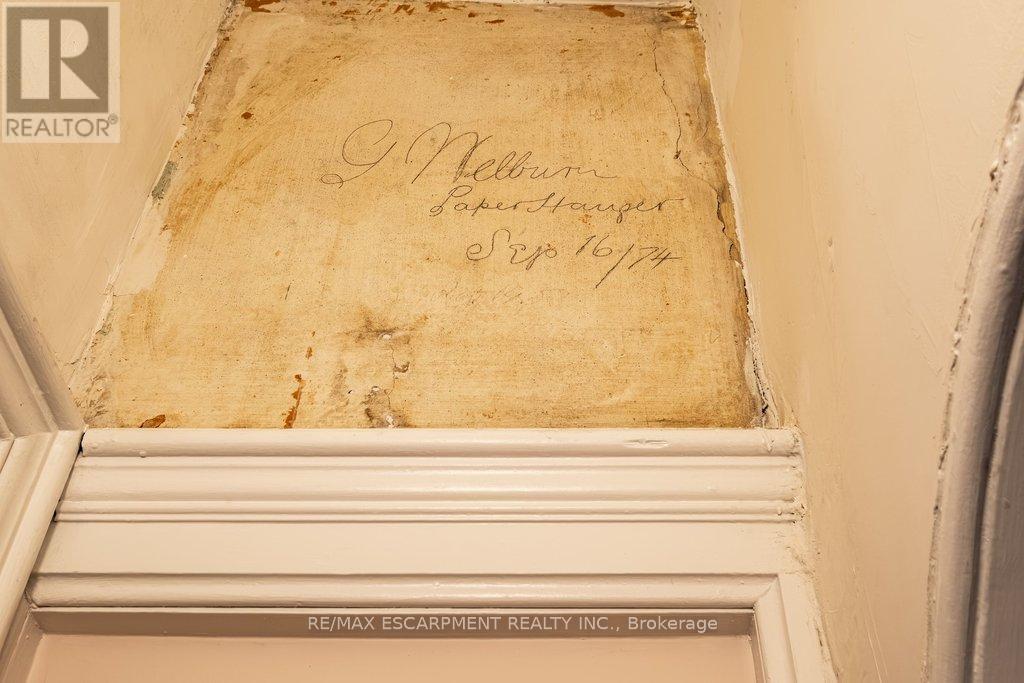 REALTOR®
G Welburn
Paper Hanger
Sep 16/74
RE/MAX ESCARPMENT REALTY INC., Brokerage